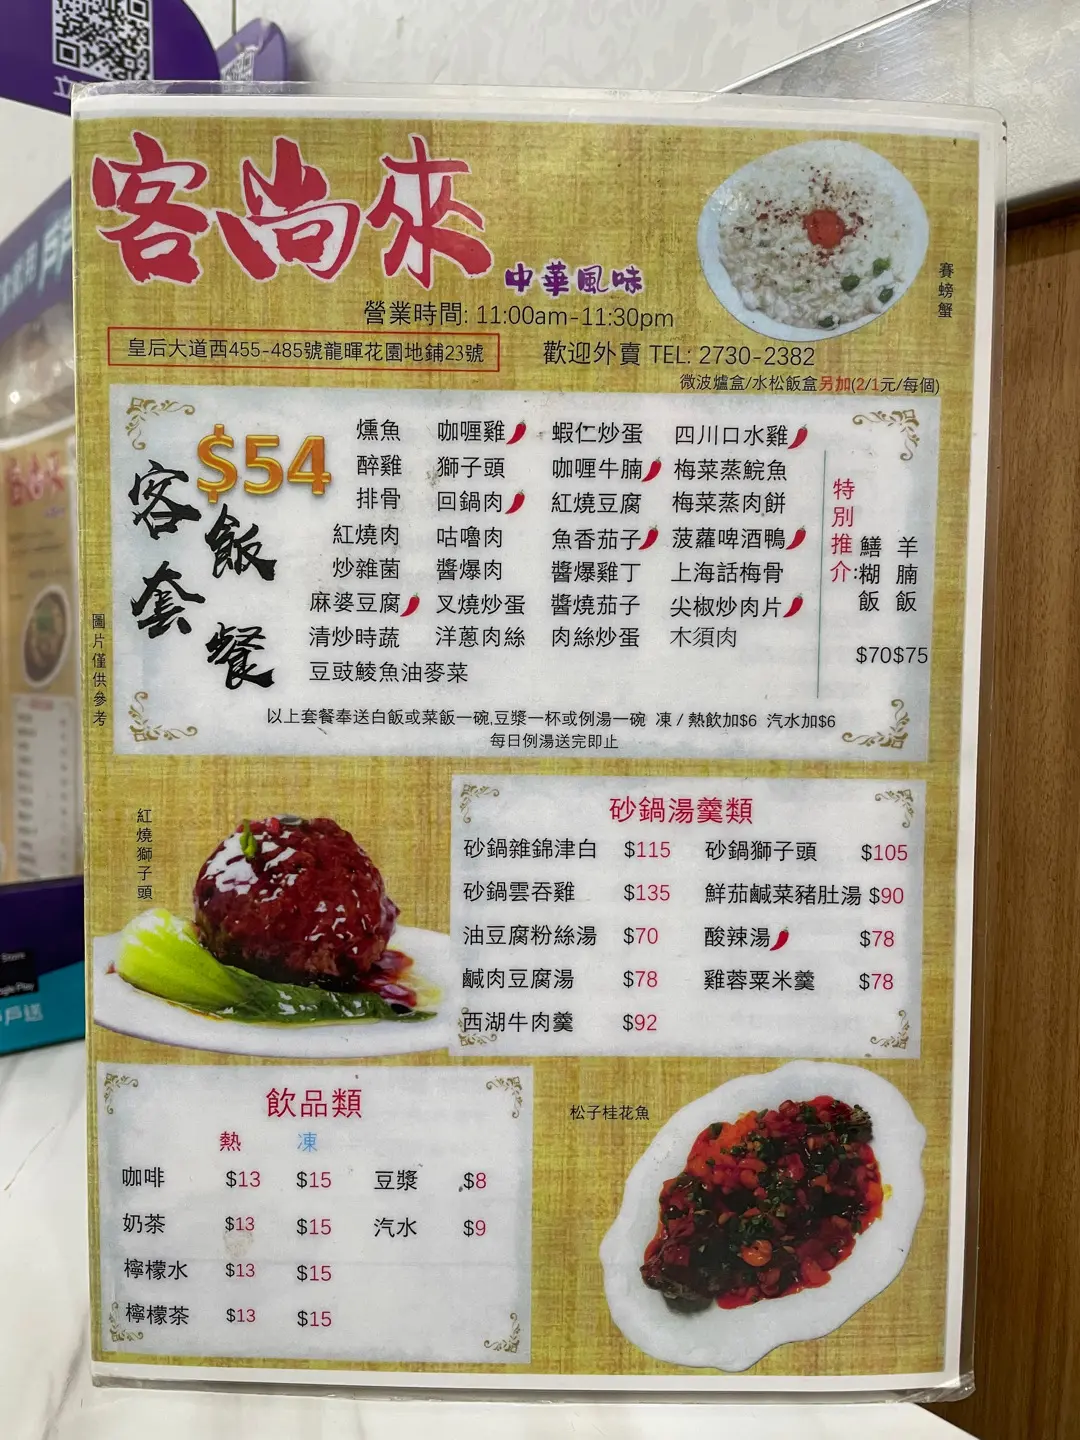 立
客尚來
中華風味
營業時間: 11:00am-11:30pm
皇后大道西455-485號龍暉花園地鋪23號
歡迎外賣 TEL: 2730-2382
微波爐盒/水松飯盒另加(2/1元/每個)
賽螃蟹
$54
客飯套餐
燻魚 咖喱雞 蝦仁炒蛋 四川口水雞
醉雞 獅子頭 咖喱牛腩 梅菜蒸鯇魚
排骨 回鍋肉 紅燒豆腐 梅菜蒸肉餅
紅燒肉 咕嚕肉 魚香茄子 菠蘿啤酒鴨
炒雜菌 醬爆肉 醬爆雞丁 上海話梅骨
麻婆豆腐 叉燒炒蛋 醬燒茄子 尖椒炒肉片
清炒時蔬 洋蔥肉絲 肉絲炒蛋 木須肉
豆豉鯪魚油麥菜
特別推介:
鱔糊飯 $70
羊腩飯 $75
以上套餐奉送白飯或菜飯一碗,豆漿一杯或例湯一碗 凍/熱飲加$6 汽水加$6
每日例湯送完即止
圖片僅供參考
紅燒獅子頭
砂鍋湯羹類
砂鍋雜錦津白 $115 砂鍋獅子頭 $105
砂鍋雲吞雞 $135 鮮茄鹹菜豬肚湯 $90
油豆腐粉絲湯 $70 酸辣湯 $78
鹹肉豆腐湯 $78 雞蓉粟米羹 $78
西湖牛肉羹 $92
飲品類
熱 凍
咖啡 $13 $15 豆漿 $8
奶茶 $13 $15 汽水 $9
檸檬水 $13 $15
檸檬茶 $13 $15
松子桂花魚
Store
gle Play
戶送